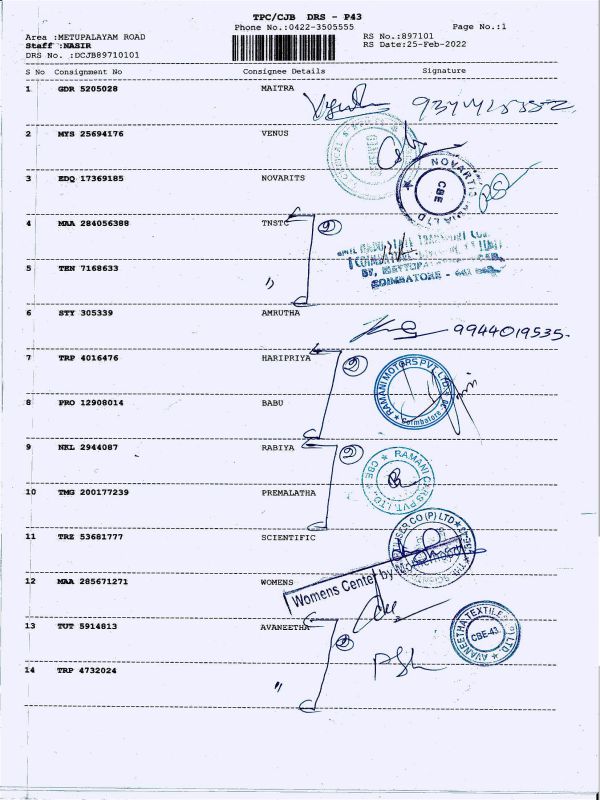 TPC/CJB DRS - P43
Phone No.:0422-3505555
Page No.:1
Area :METUPALAYAM ROAD
RS No.:897101
Staff :NASIR
RS Date:25-Feb-2022
DRS No. :DCJB89710101
S No Consignment No Consignee Details Signature
1 GDR 5205028 MAITRA
2 MYS 25694176 VENUS
3 EDQ 17369185 NOVARITS
NOVARTIS
LTD
CBE
4 MAA 284056388 TNSTC
2
COIMBATORE
5 TEN 7168633 "
6 STY 305339 AMRUTHA
9944019535
7 TRP 4016476 HARIPRIYA
2
RAMANI MOTORS PVT LTD
Coimbatore
8 PRO 12908014 BABU
9 NKL 2944087 RABIYA
2
RAMANI CARS PVT. LTD.
CBE
10 TMG 200177239 PREMALATHA
11 TRZ 53681777 SCIENTIFIC
CO (P) LTD
12 MAA 285671271 WOMENS
Womens Center by
13 TUT 5914813 AVANEETHA
2
AVANEETHA TEXTILES (P) LTD.
CBE-43
14 TRP 4732024 "